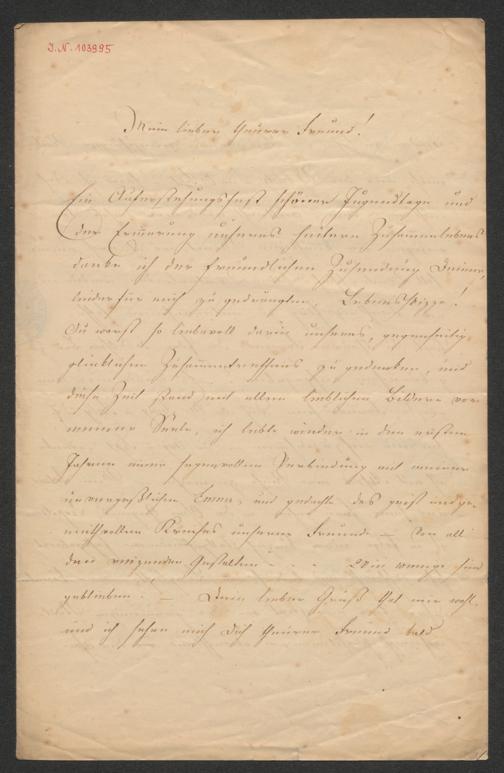 I.N. 103995
Mein lieber theurer Freund!
Ein Auferstehungsfest schöner Jugendtage und
der Erinnerung unseres heitern Zusammenlebens
danke ich der freundlichen Zusendung Deiner,
leider für mich zu gedrängten, Lebensskizze!
Du warst so liebevoll darin unseres, gegenseitig
glücklichen Zusammentreffens zu gedenken, und
diese Zeit stand mit allen lieblichen Bildern vor
meiner Seele, ich lebte wieder in den ersten
Jahren meiner segenvollen Verbindung mit meiner
unvergeßlichen Emma, und gedachte des geist und ge-
müthvollen Kreises unserer Freunde — Von all
den reizenden Gestalten . . . Wie wenige sind
geblieben. — Dein lieber Gruß that mir wohl,
und ich sehne mich Dich theurer Freund bald